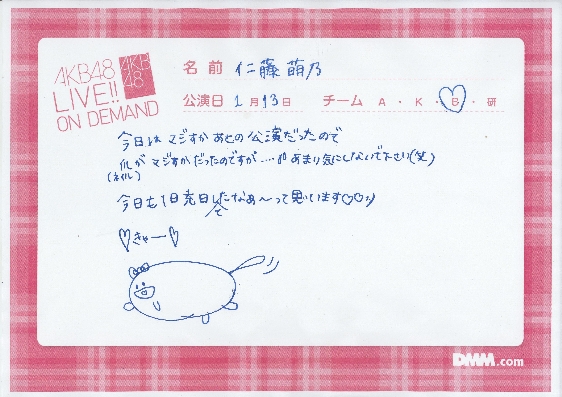 AKB48
LIVE!!
ON DEMAND
AKB
48
名前 仁藤萌乃
公演日 1月13日 チーム A・K・B・研
今日はマジすかあとの公演だったので
爪がマジすかだったのですが…。あまり気にしないで下さい(笑)
(ネイル)
今日も1日充日したなあ〜って思います♡♡:)
て
♡きゃー♡
DMM.com